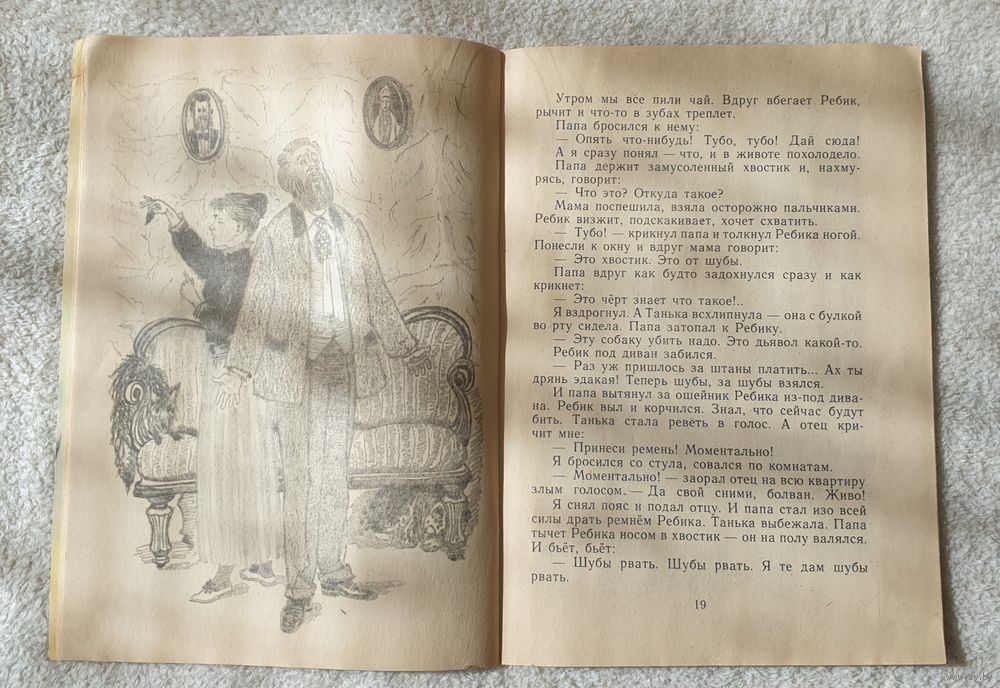 Утром мы все пили чай. Вдруг вбегает Ребик,
рычит и что-то в зубах треплет.
Папа бросился к нему:
— Опять что-нибудь! Тубо, тубо! Дай сюда!
А я сразу понял — что, и в животе похолодело.
Папа держит замусоленный хвостик и, нахму-
рясь, говорит:
— Что это? Откуда такое?
Мама поспешила, взяла осторожно пальчиками.
Ребик визжит, подскакивает, хочет схватить.
— Тубо! — крикнул папа и толкнул Ребика ногой.
Понесли к окну и вдруг мама говорит:
— Это хвостик. Это от шубы.
Папа вдруг как будто задохнулся сразу и как
крикнет:
— Это чёрт знает что такое!..
Я вздрогнул. А Танька всхлипнула — она с булкой
во рту сидела. Папа затопал к Ребику.
— Эту собаку убить надо. Это дьявол какой-то.
Ребик под диван забился.
— Раз уж пришлось за штаны платить... Ах ты
дрянь эдакая! Теперь шубы, за шубы взялся.
И папа вытянул за ошейник Ребика из-под дива-
на. Ребик выл и корчился. Знал, что сейчас будут
бить. Танька стала реветь в голос. А отец кри-
чит мне:
— Принеси ремень! Моментально!
Я бросился со стула, совался по комнатам.
— Моментально! — заорал отец на всю квартиру
злым голосом. — Да свой сними, болван. Живо!
Я снял пояс и подал отцу. И папа стал изо всей
силы драть ремнём Ребика. Танька выбежала. Папа
тычет Ребика носом в хвостик — он на полу валялся.
И бьёт, бьёт:
— Шубы рвать. Шубы рвать. Я те дам шубы
рвать.
19